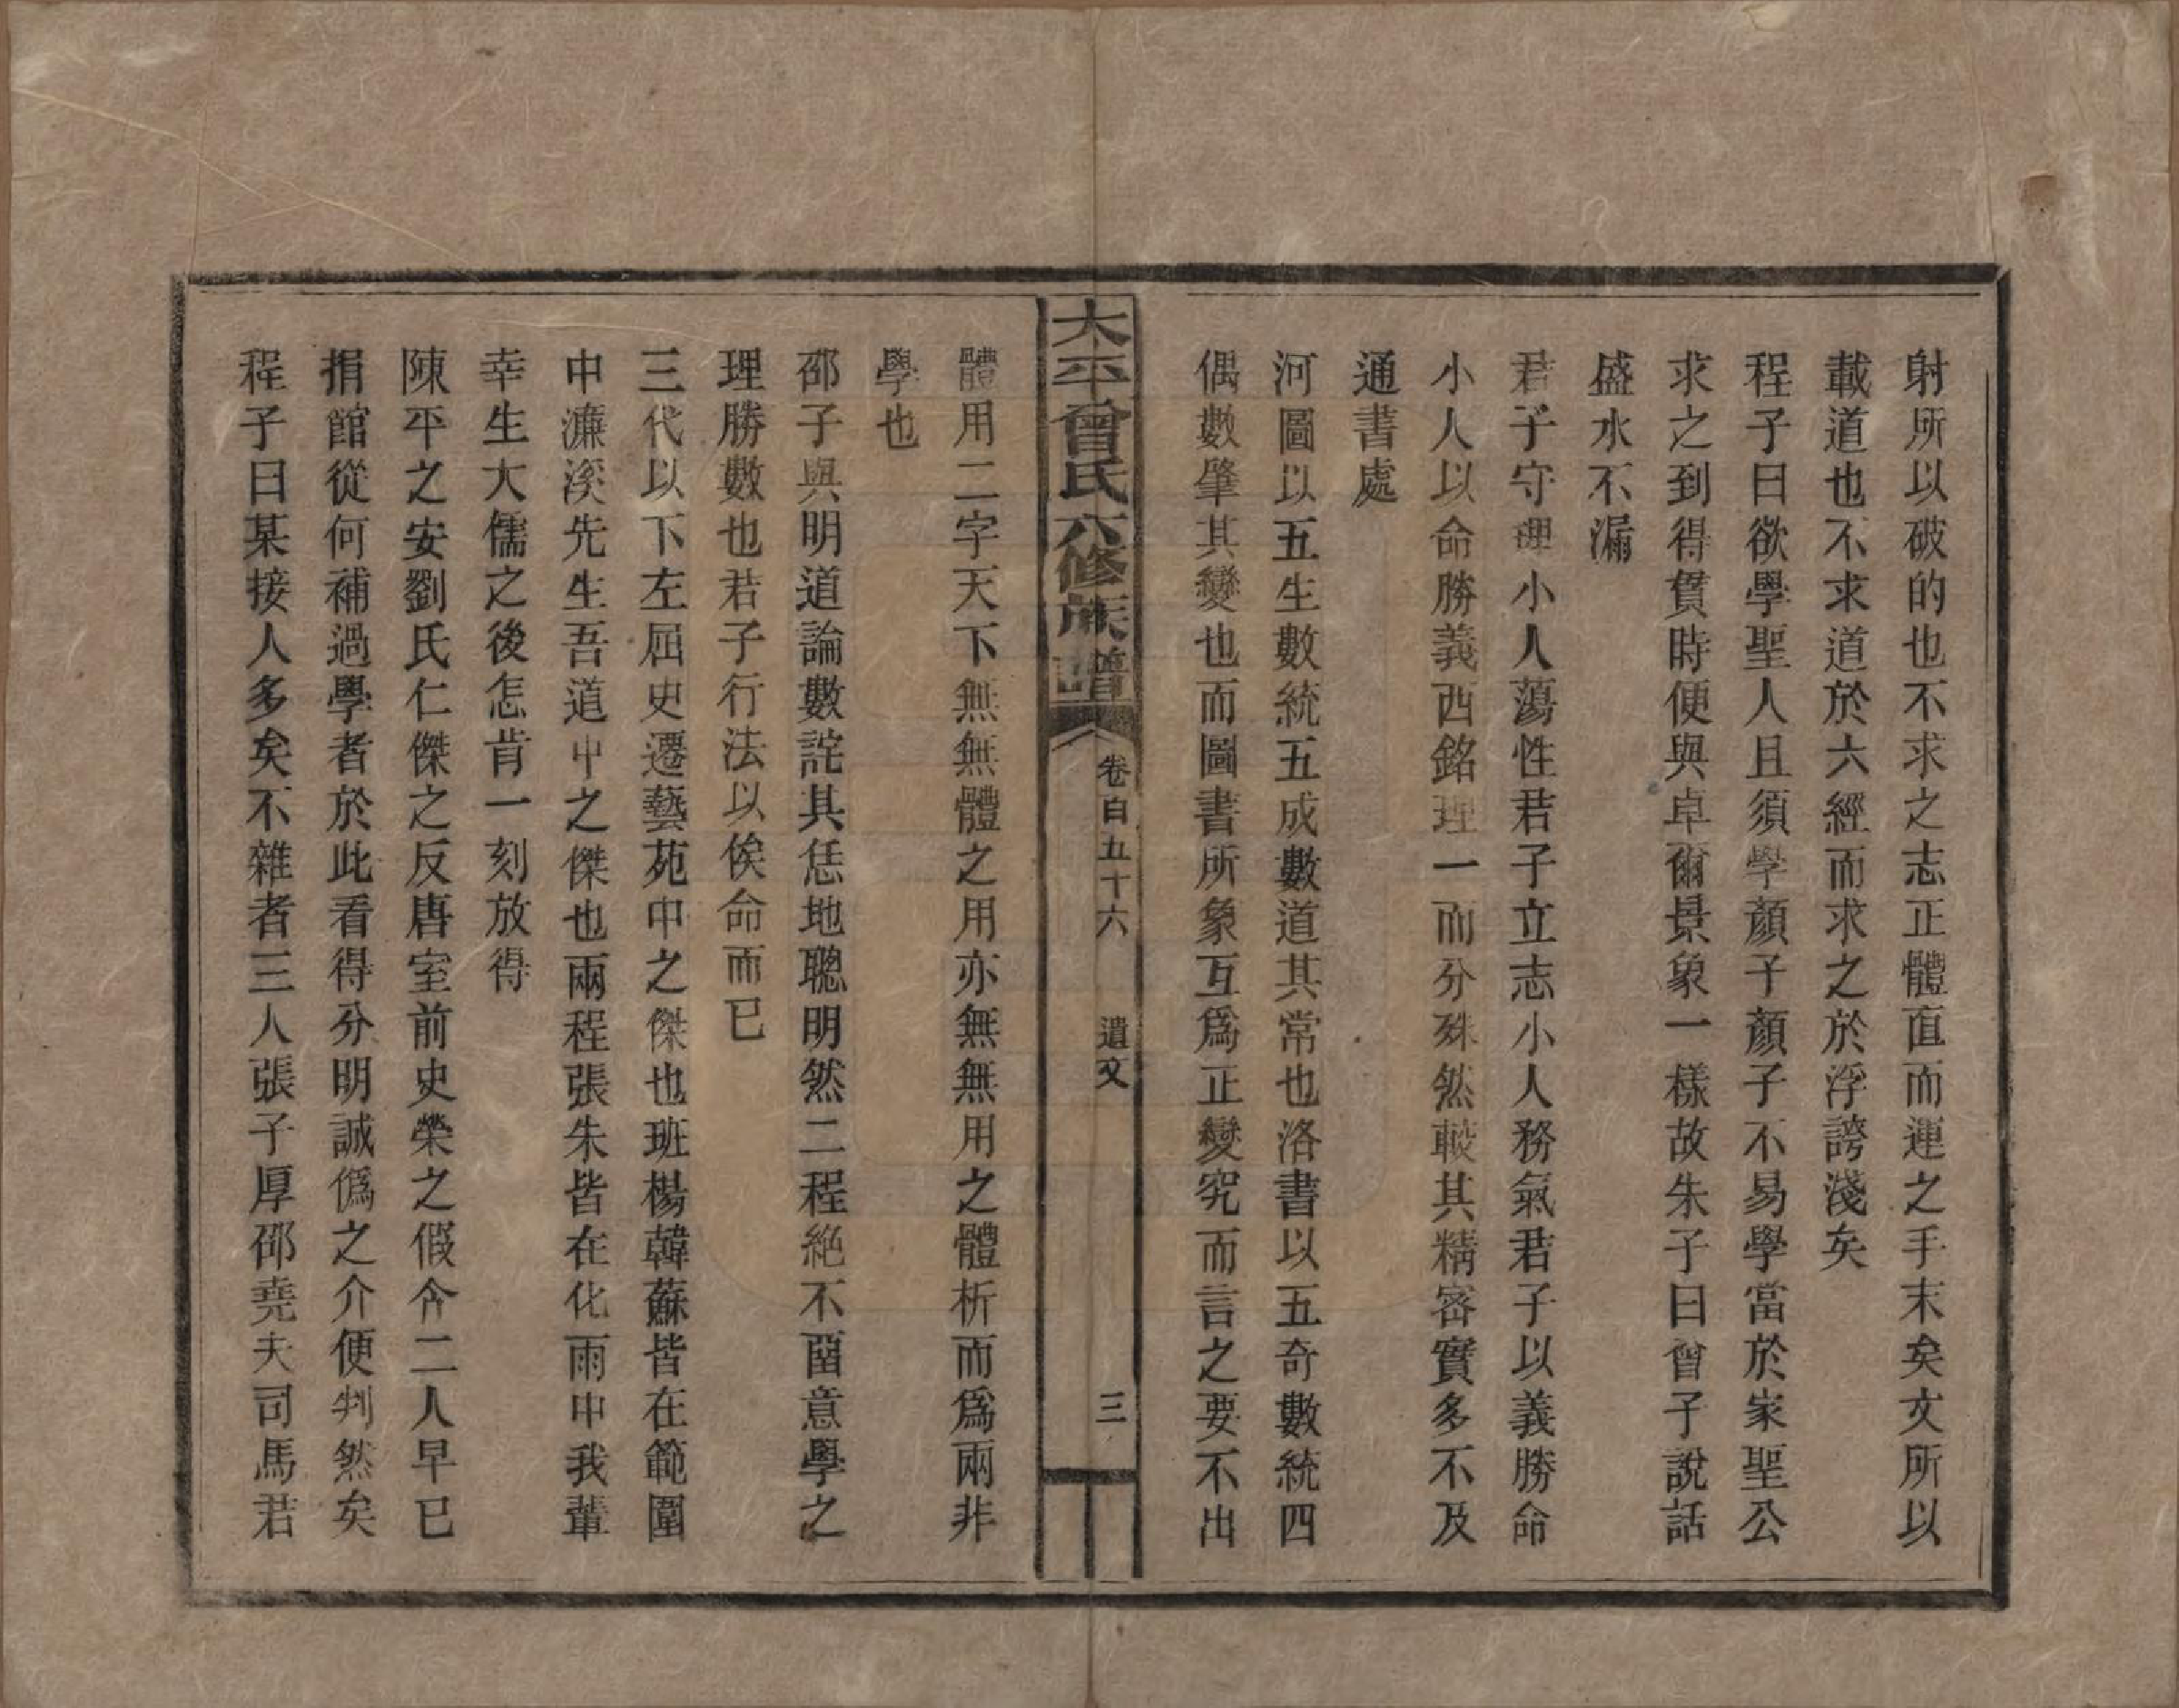 射所以破的也不求之志正體直而運之手末矣文所以
載道也不求道於六經而求之於浮誇淺矣
程子曰欲學聖人且須學顏子顏子不易學當於家聖公
求之到得貫時便與卓爾景象一樣故朱子曰曾子說話
盛水不漏
君子守理小人蕩性君子立志小人務氣君子以義勝命
小人以命勝義西銘理一而分殊然較其精密實多不及
通書處
河圖以五生數統五成數道其常也洛書以五奇數統四
偶數肇其變也而圖書所象互爲正變究而言之要不出
大平曾氏六修族譜
卷百五十六 遺文
三
體用二字天下無無體之用亦無無用之體析而爲兩非
學也
邵子與明道論數詫其恁地聰明然二程絶不畱意學之
理勝數也君子行法以俟命而已
三代以下左屈史遷藝苑中之傑也班楊韓蘇皆在範圍
中濂溪先生吾道中之傑也兩程張朱皆在化雨中我輩
幸生大儒之後怎肯一刻放得
陳平之安劉氏仁傑之反唐室前史榮之假令二人早已
捐館從何補過學者於此看得分明誠僞之介便判然矣
程子曰某接人多矣不雜者三人張子厚邵堯夫司馬君